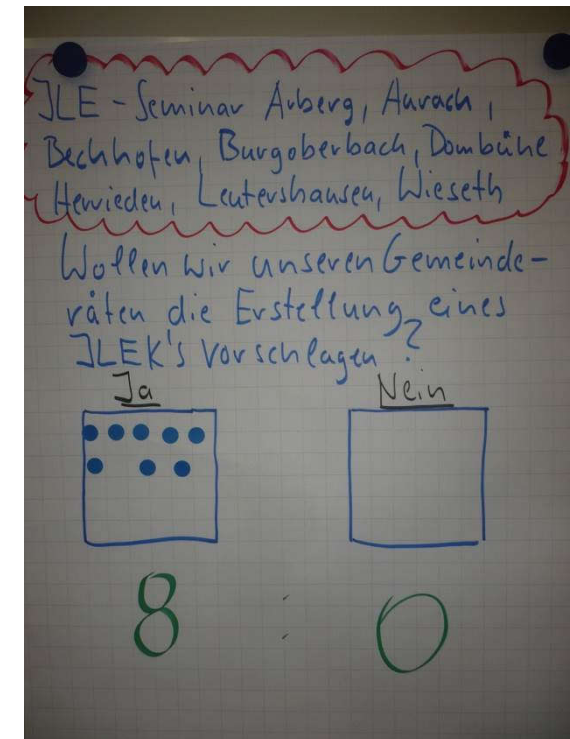 ILE-Seminar Arberg, Aurach,
Bechhofen, Burgoberbach, Dombühl
Herrieden, Leutershausen, Wieseth
Wollen wir unseren Gemeinde-
räten die Erstellung eines
ILEK's vorschlagen?
Ja Nein
8 : 0